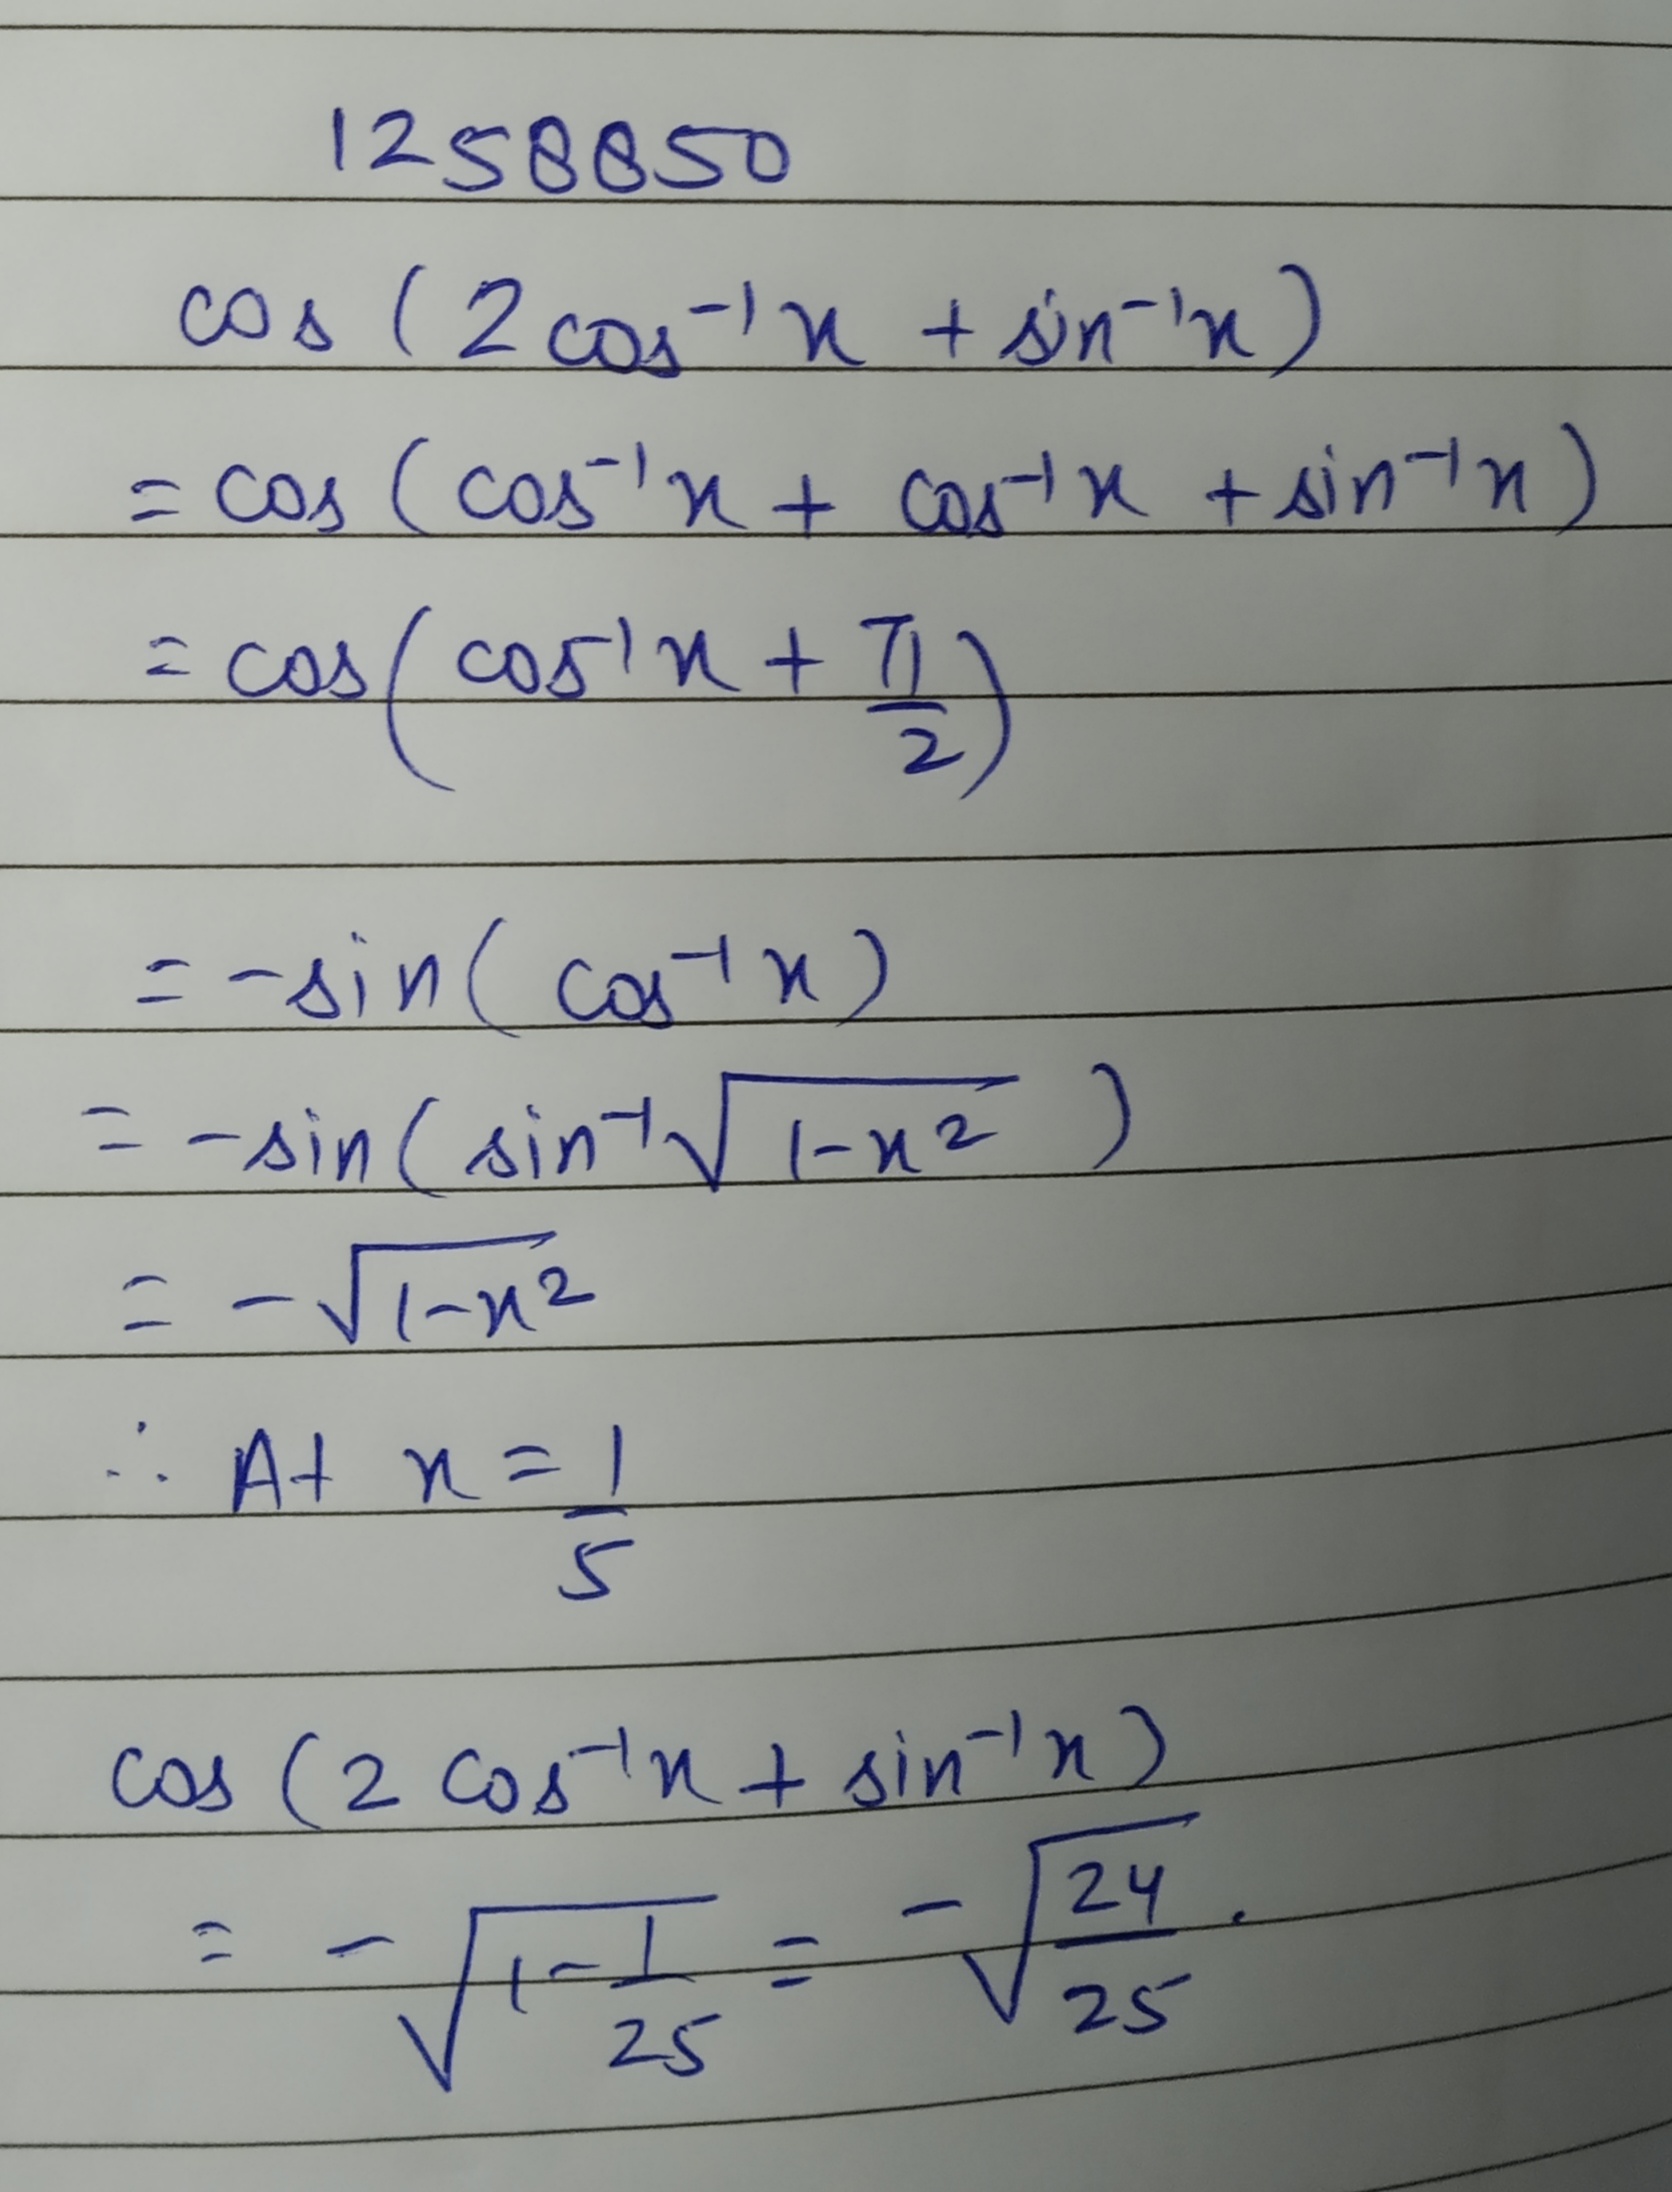 1258850
cos (2 cos⁻¹x + sin⁻¹x)
= cos (cos⁻¹x + cos⁻¹x + sin⁻¹x)
= cos (cos⁻¹x + π/2)
= -sin( cos⁻¹x)
= -sin( sin⁻¹√(1-x²) )
= -√(1-x²)
∴ At x = 1/5
cos (2 cos⁻¹x + sin⁻¹x)
= -√(1-1/25) = -√(24/25).